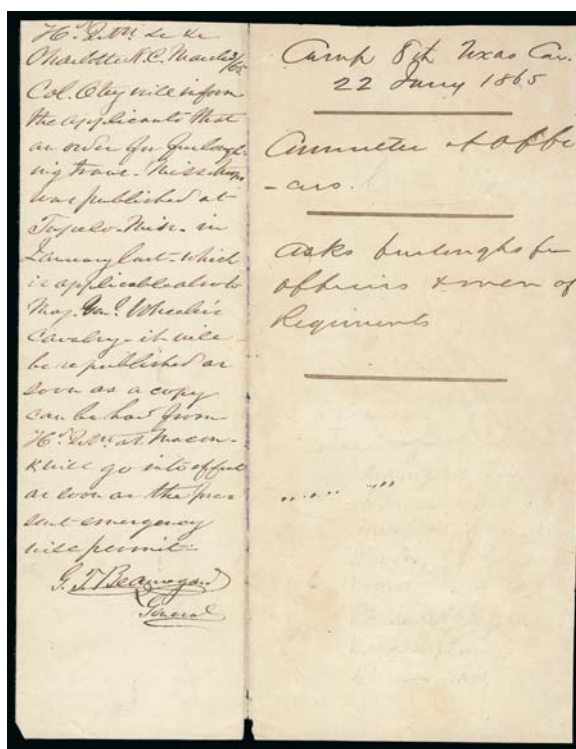 Hd. Qrs. &c &c
Charlotte N.C. March 3/65
Col. Otey will inform
the applicants that
an order for furlough-
ing trans-Miss. troops
was published at
Tupelo-Miss- in
January last- which
is applicable also to
Maj. Genl. Wheeler's
Cavalry- it will
be republished as
soon as a copy
can be had from
Hd. Qrs. at Macon-
& will go into effect
as soon as the pres-
ent emergency
will permit-
G. T. Beauregard
General
Camp 8th Texas Cav.
22 Jany 1865
Committee of Offi
-cers.
Asks furloughs for
officers & men of
Regiments